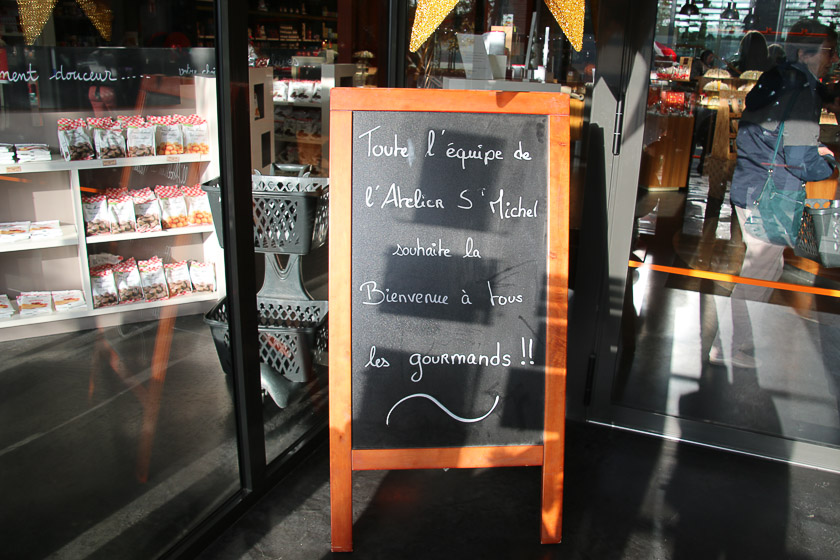 ment douceur......
Toute l'équipe de
l'Atelier St Michel
souhaite la
Bienvenue à tous
les gourmands !!